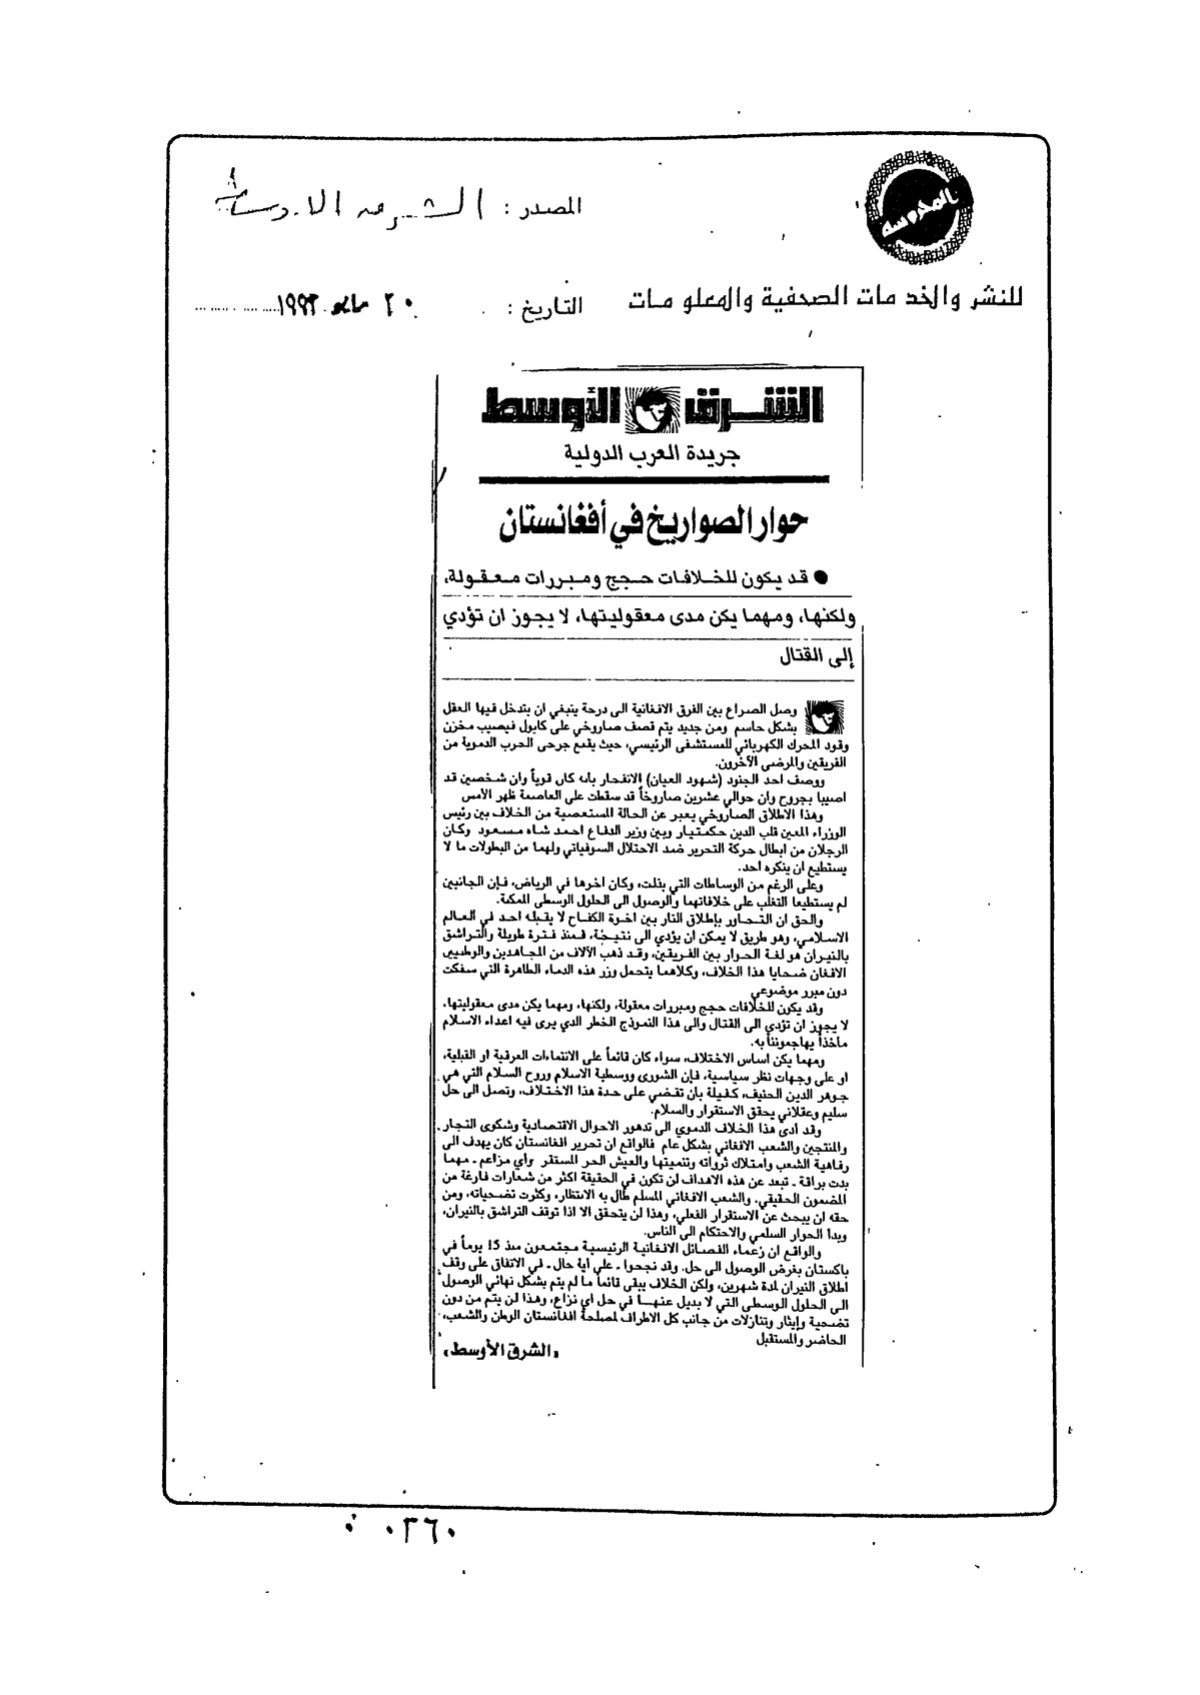 المحروسة
المصدر : الشرق الاوسط
للنشر والخدمات الصحفية والمعلومات
التاريخ : ٢٠ مايو ١٩٩٣
الشرق الأوسط
جريدة العرب الدولية
حوار الصواريخ في أفغانستان
● قد يكون للخلافات حجج ومبررات معقولة،
ولكنها، ومهما يكن مدى معقوليتها، لا يجوز ان تؤدي
إلى القتال
وصل الصراع بين الفرق الافغانية الى درجة ينبغي ان يتدخل فيها العقل
بشكل حاسم ومن جديد يتم قصف صاروخي على كابول فيصيب مخزن
وقود المحرك الكهربائي للمستشفى الرئيسي، حيث يقبع جرحى الحرب الدموية من
الفريقين والمرضى الآخرون.
ووصف احد الجنود (شهود العيان) الانفجار بانه كان قوياً وان شخصين قد
اصيبا بجروح وان حوالي عشرين صاروخاً قد سقطت على العاصمة ظهر الأمس
وهذا الاطلاق الصاروخي يعبر عن الحالة المستعصية من الخلاف بين رئيس
الوزراء المعين قلب الدين حكمتيار وبين وزير الدفاع احمد شاه مسعود وكان
الرجلان من ابطال حركة التحرير ضد الاحتلال السوفياتي ولهما من البطولات ما لا
يستطيع ان ينكره احد.
وعلى الرغم من الوساطات التي بذلت، وكان اخرها في الرياض، فإن الجانبين
لم يستطيعا التغلب على خلافاتهما والوصول الى الحلول الوسطى الممكنة.
والحق ان التحاور بإطلاق النار بين اخوة الكفاح لا يقبله احد في العالم
الاسلامي، وهو طريق لا يمكن ان يؤدي الى نتيجة، فمنذ فترة طويلة والتراشق
بالنيران هو لغة الحوار بين الفريقين، وقد ذهب الآلاف من المجاهدين والوطنيين
الافغان ضحايا هذا الخلاف، وكلاهما يتحمل وزر هذه الدماء الطاهرة التي سفكت
دون مبرر موضوعي
وقد يكون للخلافات حجج ومبررات معقولة، ولكنها، ومهما يكن مدى معقوليتها،
لا يجوز ان تؤدي الى القتال والى هذا النموذج الخطر الذي يرى فيه اعداء الاسلام
مأخذاً يهاجموننا به.
ومهما يكن اساس الاختلاف، سواء كان قائماً على الانتماءات العرقية او القبلية،
او على وجهات نظر سياسية، فإن الشورى ووسطية الاسلام وروح السلام التي هي
جوهر الدين الحنيف، كفيلة بان تقضي على حدة هذا الاختلاف، وتصل الى حل
سليم وعقلاني يحقق الاستقرار والسلام.
وقد ادى هذا الخلاف الدموي الى تدهور الاحوال الاقتصادية وشكوى التجار
والمنتجين والشعب الافغاني بشكل عام فالواقع ان تحرير افغانستان كان يهدف الى
رفاهية الشعب وامتلاك ثرواته وتنميتها والعيش الحر المستقر وأي مزاعم ـ مهما
بدت براقة ـ تبعد عن هذه الاهداف لن تكون في الحقيقة اكثر من شعارات فارغة من
المضمون الحقيقي. والشعب الافغاني المسلم طال به الانتظار، وكثرت تضحياته، ومن
حقه ان يبحث عن الاستقرار الفعلي، وهذا لن يتحقق الا اذا توقف التراشق بالنيران،
وبدا الحوار السلمي والاحتكام الى الناس.
والواقع ان زعماء الفصائل الافغانية الرئيسية مجتمعون منذ 15 يوماً في
باكستان بغرض الوصول الى حل. وقد نجحوا ـ على اية حال ـ في الاتفاق على وقف
اطلاق النيران لمدة شهرين، ولكن الخلاف يبقى قائماً ما لم يتم بشكل نهائي الوصول
الى الحلول الوسطى التي لا بديل عنها في حل اي نزاع، وهذا لن يتم من دون
تضحية وإيثار وتنازلات من جانب كل الاطراف لمصلحة افغانستان الوطن والشعب،
الحاضر والمستقبل
«الشرق الأوسط»
٠٢٦٠